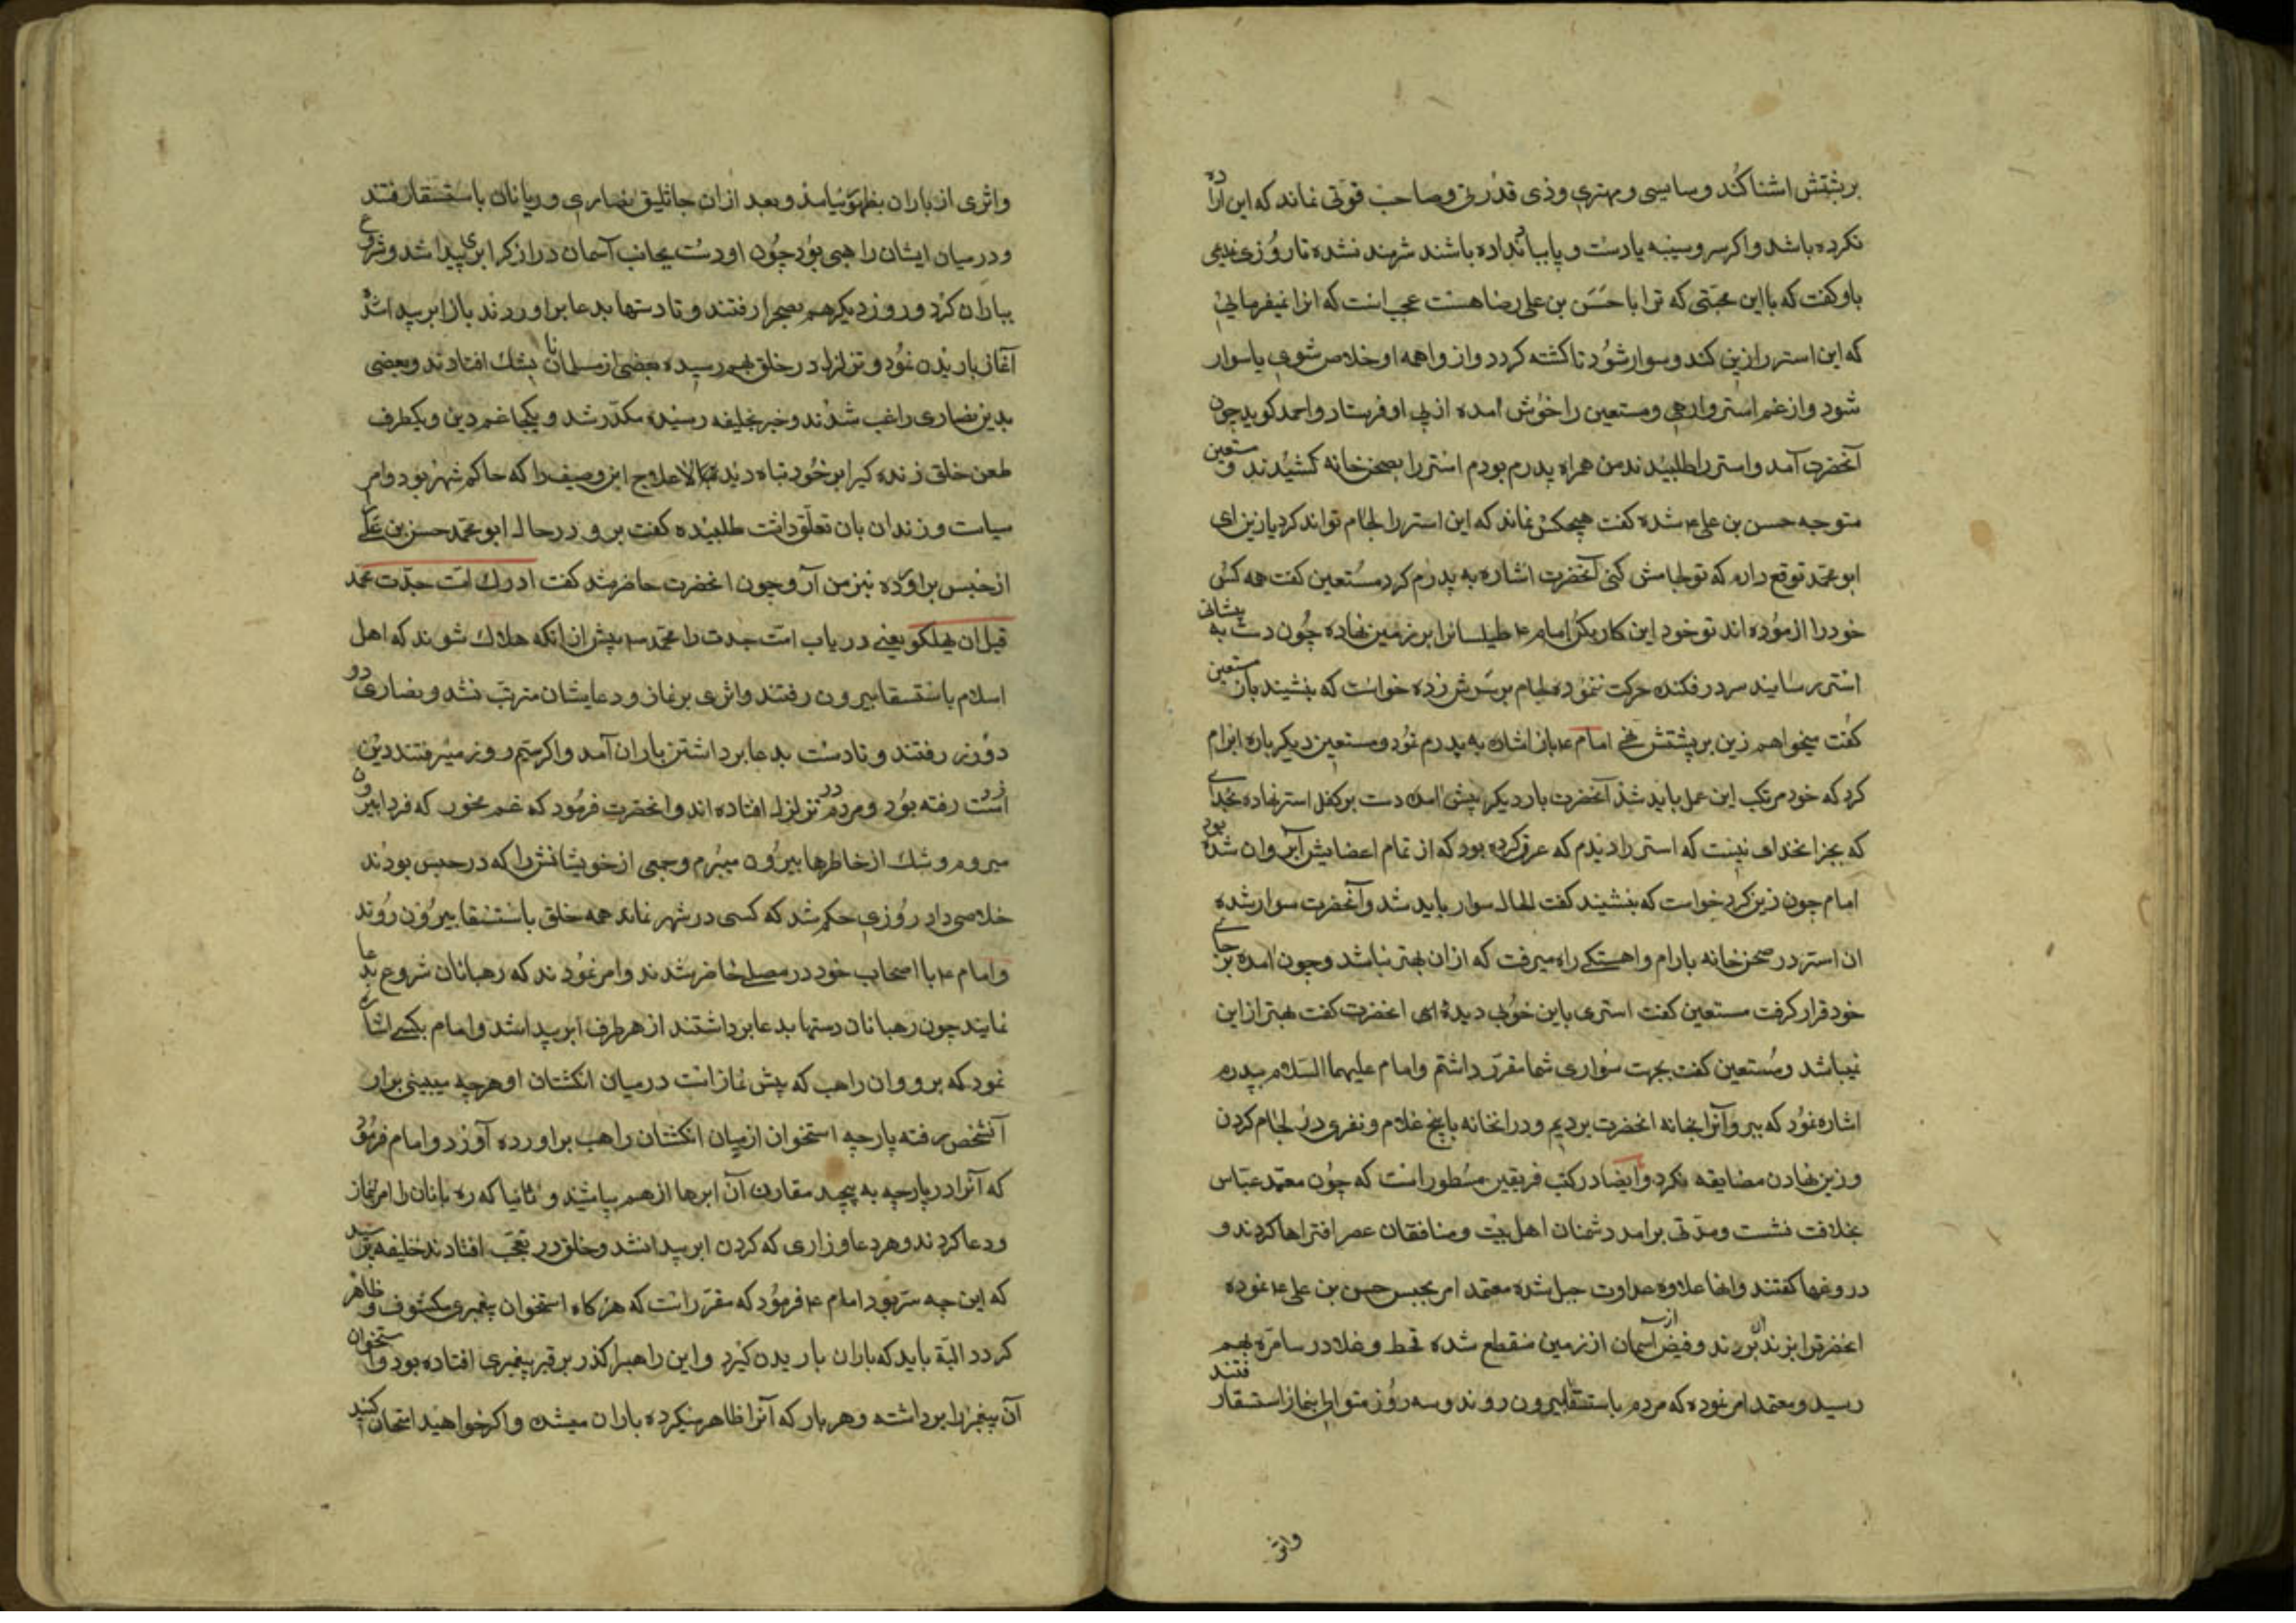 برپشتش اشنا کند و سایسی و مهتری وذی قدرتی وصاحب قوتی نماند که این اراده
نکرده باشد واکر سر وسینه یا دست و پا بباد نداده باشند شرمند نشده تا روزی ندیمی
باو کفت که با این محبتی که ترا با حسن بن علی رضا هست عجب است که انرا نمیفرمائی
که این استر را زین کند وسوار شود تا کشته کردد واز واهمه او خلاص شوی یا سوار
شود و از غم استر وارهی ومستعین را خوش امده از پی او فرستاد واحمد کوید چون
آنحضرت آمد واستر را طلبیدند من همراه پدرم بودم استر را بصحن خانه کشیدند ومستعین
متوجه حسن بن علی ع شده کفت هیچکس نماند که این استر را لجام تواند کرد یا زین ای
ابو محمد توقع دارم که تو لجامش کنی آنحضرت اشاره به پدرم کرد مستعین کفت همه کس
خود را ازموده اند تو خود این کار بکن امام ع طیلسانرا بر زمین نهاده چون دست به پیشانی
استر رسانید سر در فکنده حرکت ننموده لجام بر سرش زده خواست که بنشیند باز مستعین
کفت میخواهم زین بر پشتش نهی امام ع باز اشاره به پدرم نمود ومستعین دیکر باره ابرام
کرد که خود مرتکب این عمل باید شد آنحضرت بار دیکر پیش امده دست بر کفل استر نهاده بخدای
که بجز انخدای نیست که استر را دیدم که عرق کرده بود که از تمام اعضایش آب روان شده بود
امام چون زین کرد خواست که بنشیند کفت الحال سوار باید شد وآنحضرت سوار شده
ان استر در صحن خانه بارام واهستکی راه میرفت که ازان بهتر نباشد وچون امده بر جای
خود قرار کرفت مستعین کفت استری باین خوبی دیدهٔ ای انحضرت کفت بهتر از این
نمیباشد ومستعین کفت بجهت سواری شما مقرر داشتم وامام علیهما السلام بپدرم
اشاره نمود که ببر وآنرا بخانه انحضرت بردیم ودرانخانه با پنج غلام ونفری در لجام کردن
وزین نهادن مضایقه نکرد وایضا در کتب فریقین مسطور است که چون معتمد عباس
بخلافت نشست ومدتی برامد دشمنان اهل بیت ومنافقان عصر افتراها کردند و
دروغها کفتند وانها علاوه عداوت جبل شده معتمد امر بحبس حسن بن علی ع نموده
انحضرترا بزندان بردند وفیض از آسمان از زمین منقطع شده قحط وغلا در سامره بهم
رسید ومعتمد امر نموده که مردم باستسقا بیرون روند وسه روز متوالی بنماز استسقا رفتند
واثری
واثری از باران بظهور نیامد وبعد ازان جاثلیق نصاری ورهبانان باستسقا رفتند
ودرمیان ایشان راهبی بود چون او دست بجانب آسمان دراز کرد ابری پیدا شد وشروع
بباران کرد وروز دیکر هم بصحرا رفتند وتا دستها بدعا براوردند باز ابر پیدا شده
آغاز باریدن نمود وتزلزل در خلق بهم رسیده بعضی از مسلمانان بشک افتادند وبعضی
بدین نصاری راغب شدند وخبر بخلیفه رسیده مکدر شد ویکجا غم دین ویکطرف
طعن خلق زنده کیرا بر خود تباه دید لاعلاج این وصیف را که حاکم شهر بود وامر
سیاست وزندان بان تعلق داشت طلبیده کفت برو ودرحال ابو محمد حسن بن علی را
از حبس براورده نیز من آر وچون انحضرت حاضر شد کفت ادرك امت جدت محمد
قبل ان یهلکو یعنی دریاب امت جدت را محمد ص پیش از انکه هلاك شوند که اهل
اسلام باستسقا بیرون رفتند واثری بر نماز ودعا ایشان مترتب نشد ونصاری دو
دو روز رفتند وتا دست بدعا برداشتن باران آمد واکر سیم روز میرفتند دین
از دست رفته بود ومردم در تزلزل افتاده اند وانحضرت فرمود که غم مخور که فردا بیرون
میروم وشك از خاطرها بیرون میبرم وجمعی از خویشانش را که در حبس بودند
خلاصی داد روزی حکم شد که کسی در شهر نماند همه خلق باستسقا بیرون روند
وامام ع با اصحاب خود در مصلی حاضر شدند وامر نمودند که رهبانان شروع بدعا
نمایند چون رهبانان دستها بدعا برداشتند از هر طرف ابر پیدا شد وامام بکسی اشاره
نمود که برو وان راهب که پیش نماز است درمیان انکشتان او هرچه میبینی برار
آنشخص رفته پارچه استخوان ازمیان انکشتان راهب براورده آورد وامام فرمود
که آنرا در پارچه به پیچید مقارن آن ابرها ازهم بپاشید وثانیا که رهبانان را امر بنماز
ودعا کردند وهر دعا وزاری که کردن ابر پیدا نشد وخلق در تعجب افتادند خلیفه پرسید
که این چه سر بود امام ع فرمود که مقرر است که هر کاه استخوان پیغمبری مکشوف وظاهر
کردد البته باید که باران باریدن کیرد واین راهبرا کذر بر قبر پیغمبری افتاده بود واستخوان
آن پیغمبر را برداشته وهر بار که آنرا ظاهر میکرده باران میشده واکر خواهید امتحان کنید